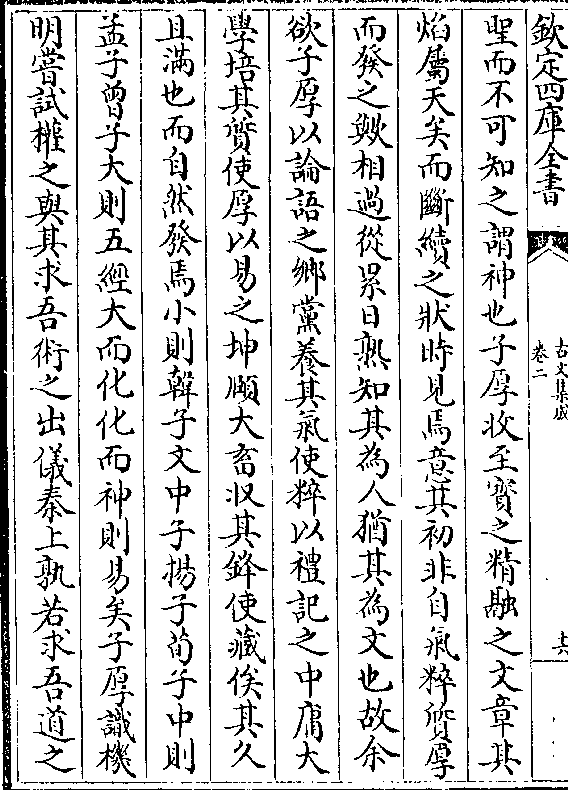 欽定四庫全書
古文集成
卷二
聖而不可知之謂神也子厚收至寳之精融之文章其
焰屬天矣而斷續之狀時見焉意其初非自氣粹質厚
而發之歟相過從累日熟知其為人猶其為文也故余
欲子厚以論語之鄉黨養其氣使粹以禮記之中庸大
學培其質使厚以易之坤頤大畜收其鋒使藏俟其久
且滿也而自然發焉小則韓子文中子揚子荀子中則
孟子曾子大則五經大而化化而神則易矣子厚識機
明嘗試權之與其求吾術之出儀秦上孰若求吾道之